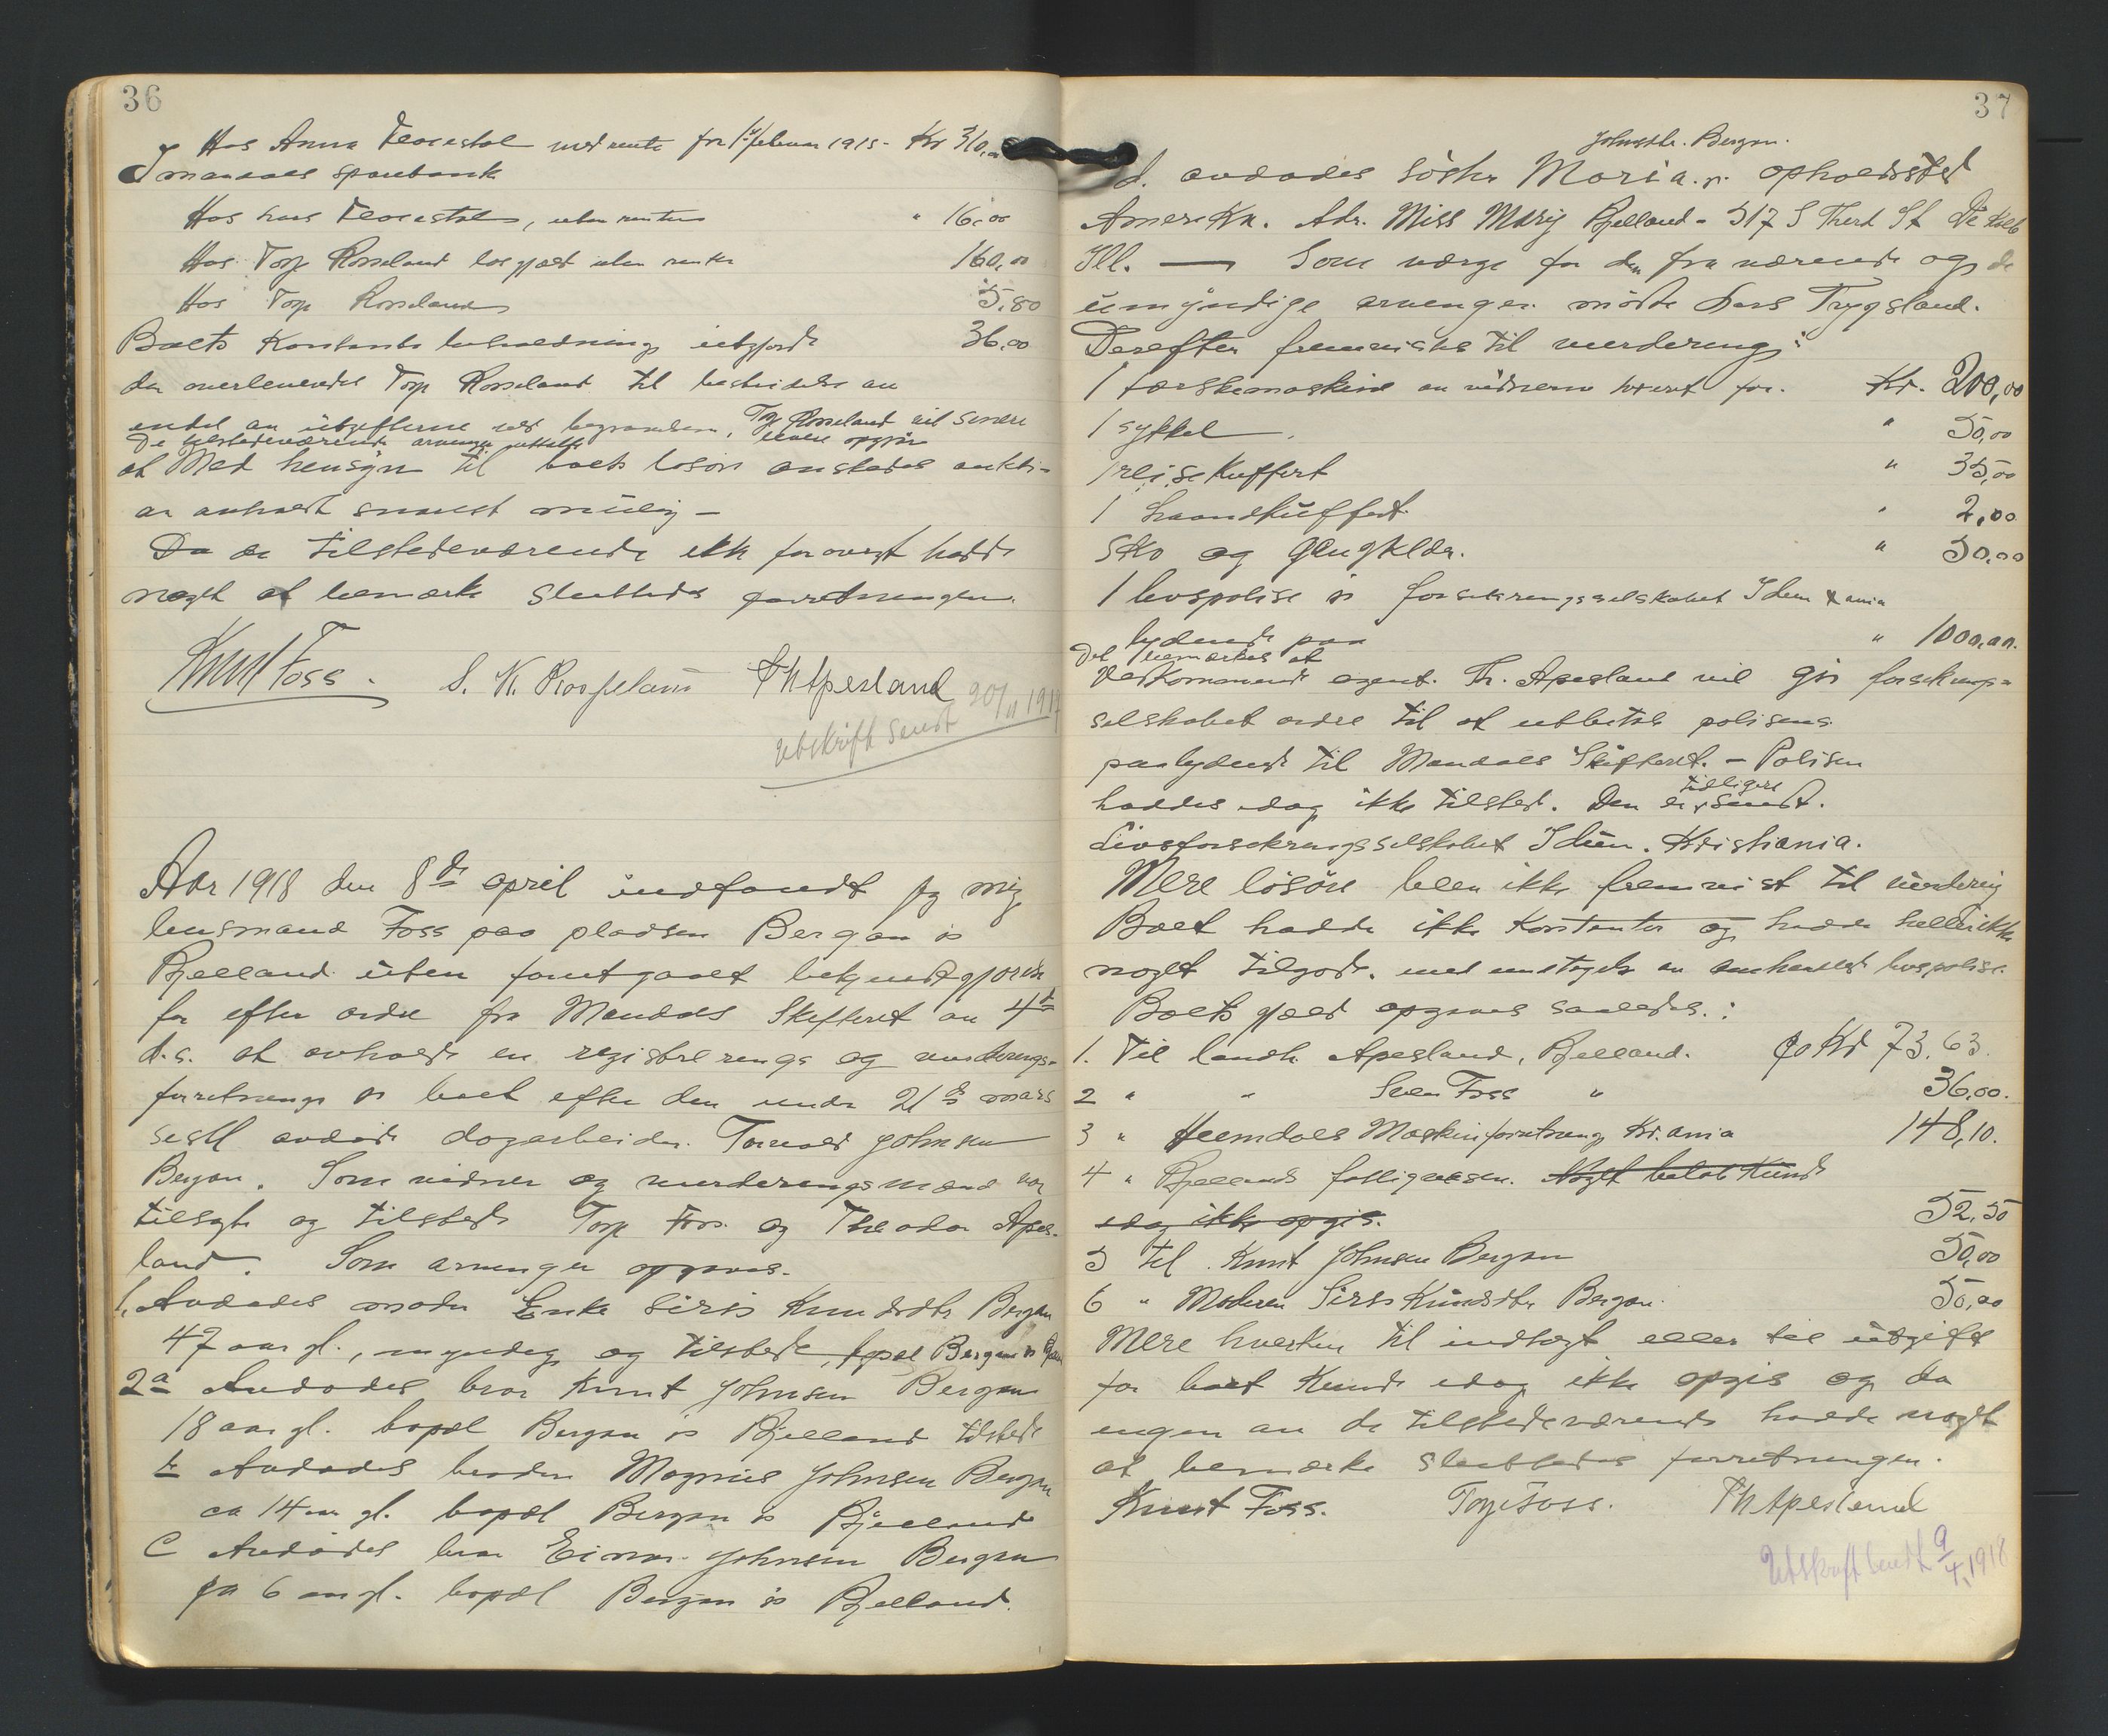 36
Hos Anna med rente fra 1/ februar 1915 - Kr 310,
I mandals sparebank
Hos uten renter " 16,00
Hos Torje Rosseland uten renter 160,00
Hos Torje Rosseland 5,80
Boets Kontante beholdning utgjorde 36,00
den overlevende Torje Rosseland til bestridelse av
endel av utgifterne ved begravelsen. Torje Rosseland vil senere
De tilstedeværende arvinger uttalte levere opgjør
at Med hensyn til boets løsøre ønskedes auktion
avholdt snarest mulig -
Da de tilstedeværende ikke forøvrigt hadde
noget at bemærke sluttedes forretningen.
Knut Foss. S. K. Rosseland Th Apesland
Utskrift sendt 20/11 1917
Aar 1918 den 8de april indfandt jeg mig
lensmand Foss paa pladsen Bergan i
Bjelland uten forutgaaet bekjendtgjørelse
for efter ordre fra Mandals Skifteret av 4de
d.s. at avholde en registrerings og vurderings-
forretning i boet efter den under 21de mars
sestl avdøde dagarbeider Torvald Johnsen
Bergan. Som vidner og vurderingsmænd var
tilsagte og tilstede Torje Foss og Theodor Apes-
land. Som arvinger opgaves.
1, Avdødes moder Enke Siri Knudsdtr Bergan
47 aar gl., myndig og tilstede, bopæl Bergan i
2a Avdødes bror Knut Johnsen Bergan
18 aar gl. bopæl Bergan i Bjelland tilstede
b Avdødes broder Magnus Johnsen Bergan
ca 14 aar gl. bopæl Bergan i Bjelland
C Avdødes bror Einar Johnsen Bergan
ca 6 aar gl. bopæl Bergan i Bjelland.
37
Johnsdtr. Bergan.
d. avdødes søster Maria opholdssted
Amerika. Adr. Miss Mary Bjelland - 317 S Third St De Kalb
Ill. — Som værge for den fraværende og de
umyndige arvinger møtte Lars Trygsland.
Derefter fremvistes til vurdering:
1 tærskemaskine av vidnerne taxert for. Kr. 200,00
1 sykkel " 50,00
1 reisekuffert " 35,00
1 haandkuffert " 2,00
Sko og Gangklær. " 50,00
1 livspolise i forsikringsselskabet Idun Kr.ania
lydende paa " 1000,00.
Det bemærkes at
Vedkommende agent. Th. Apesland vil gi forsikrings-
selskabet ordre til at utbetale polisens
paalydende til Mandals Skifteret. - Polisen
haddes idag ikke tilstede. Den er tidligere sendt.
Livsforsikringsselskabet Idun. Kristiania.
Mere løsøre blev ikke fremvist til vurdering
Boet hadde ikke Kontanter og hadde heller ikke
noget tilgode. med undtagelse av livspolise.
Boets gjæld opgaves saaledes.:
1. Til landh. Apesland, Bjelland. Kr 73,63.
2 " " Sven Foss " 36,00.
3 " Heemdals Maskinforretning Kr.ania 148,10.
4 " Bjellands fattigvæsen. Noget beløb Kunde
idag ikke opgis. 52,50
5 til Knut Johnsen Bergan 50,00
6 " Moderen Siri Knudsdtr Bergan. 50,00
Mere hverken til indtægt eller til utgift
for boet Kunde idag ikke opgis og da
ingen av de tilstedeværende hadde noget
at bemærke sluttedes forretningen.
Knut Foss. Torje Foss. Th Apesland
Utskrift sendt 9/4 1918